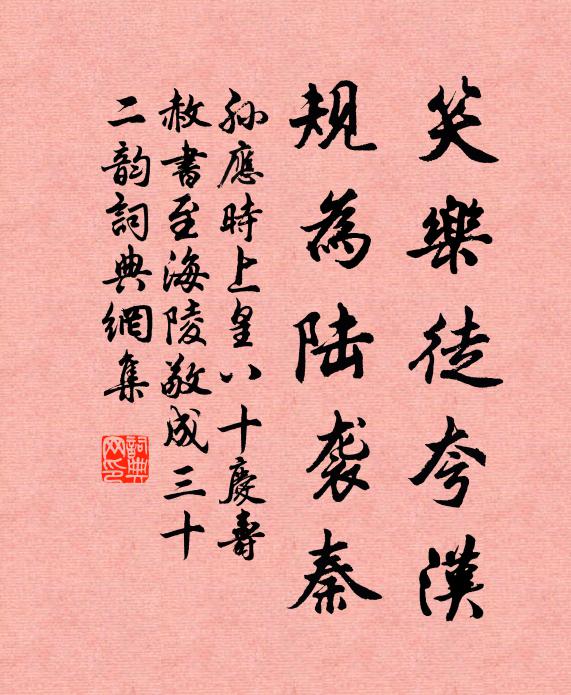 笑樂徒夸漢
規為陆袭秦
孙應時上皇八十慶壽
赦書至海陵敬成三十
二韵詞典網集
詞典网印